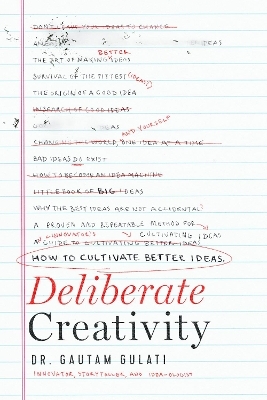 DON'T LEAVE YOUR IDEAS TO CHANCE
IDEAS
BETTER
THE ART OF MAKING IDEAS
SURVIVAL OF THE FITTEST (IDEAS)
THE ORIGIN OF A GOOD IDEA
IN SEARCH OF GOOD IDEAS
IDEAS
AND YOURSELF
CHANGING THE WORLD, ONE IDEA AT A TIME
BAD IDEAS DO EXIST
HOW TO BECOME AN IDEA MACHINE
LITTLE BOOK OF BIG IDEAS
WHY THE BEST IDEAS ARE NOT ACCIDENTAL?
A PROVEN AND REPEATABLE METHOD FOR
AN INNOVATOR'S CULTIVATING IDEAS
GUIDE TO CULTIVATING BETTER IDEAS
HOW TO CULTIVATE BETTER IDEAS.
Deliberate
Creativity
DR. GAUTAM GULATI
INNOVATOR, STORYTELLER, AND IDEA-OLOGIST